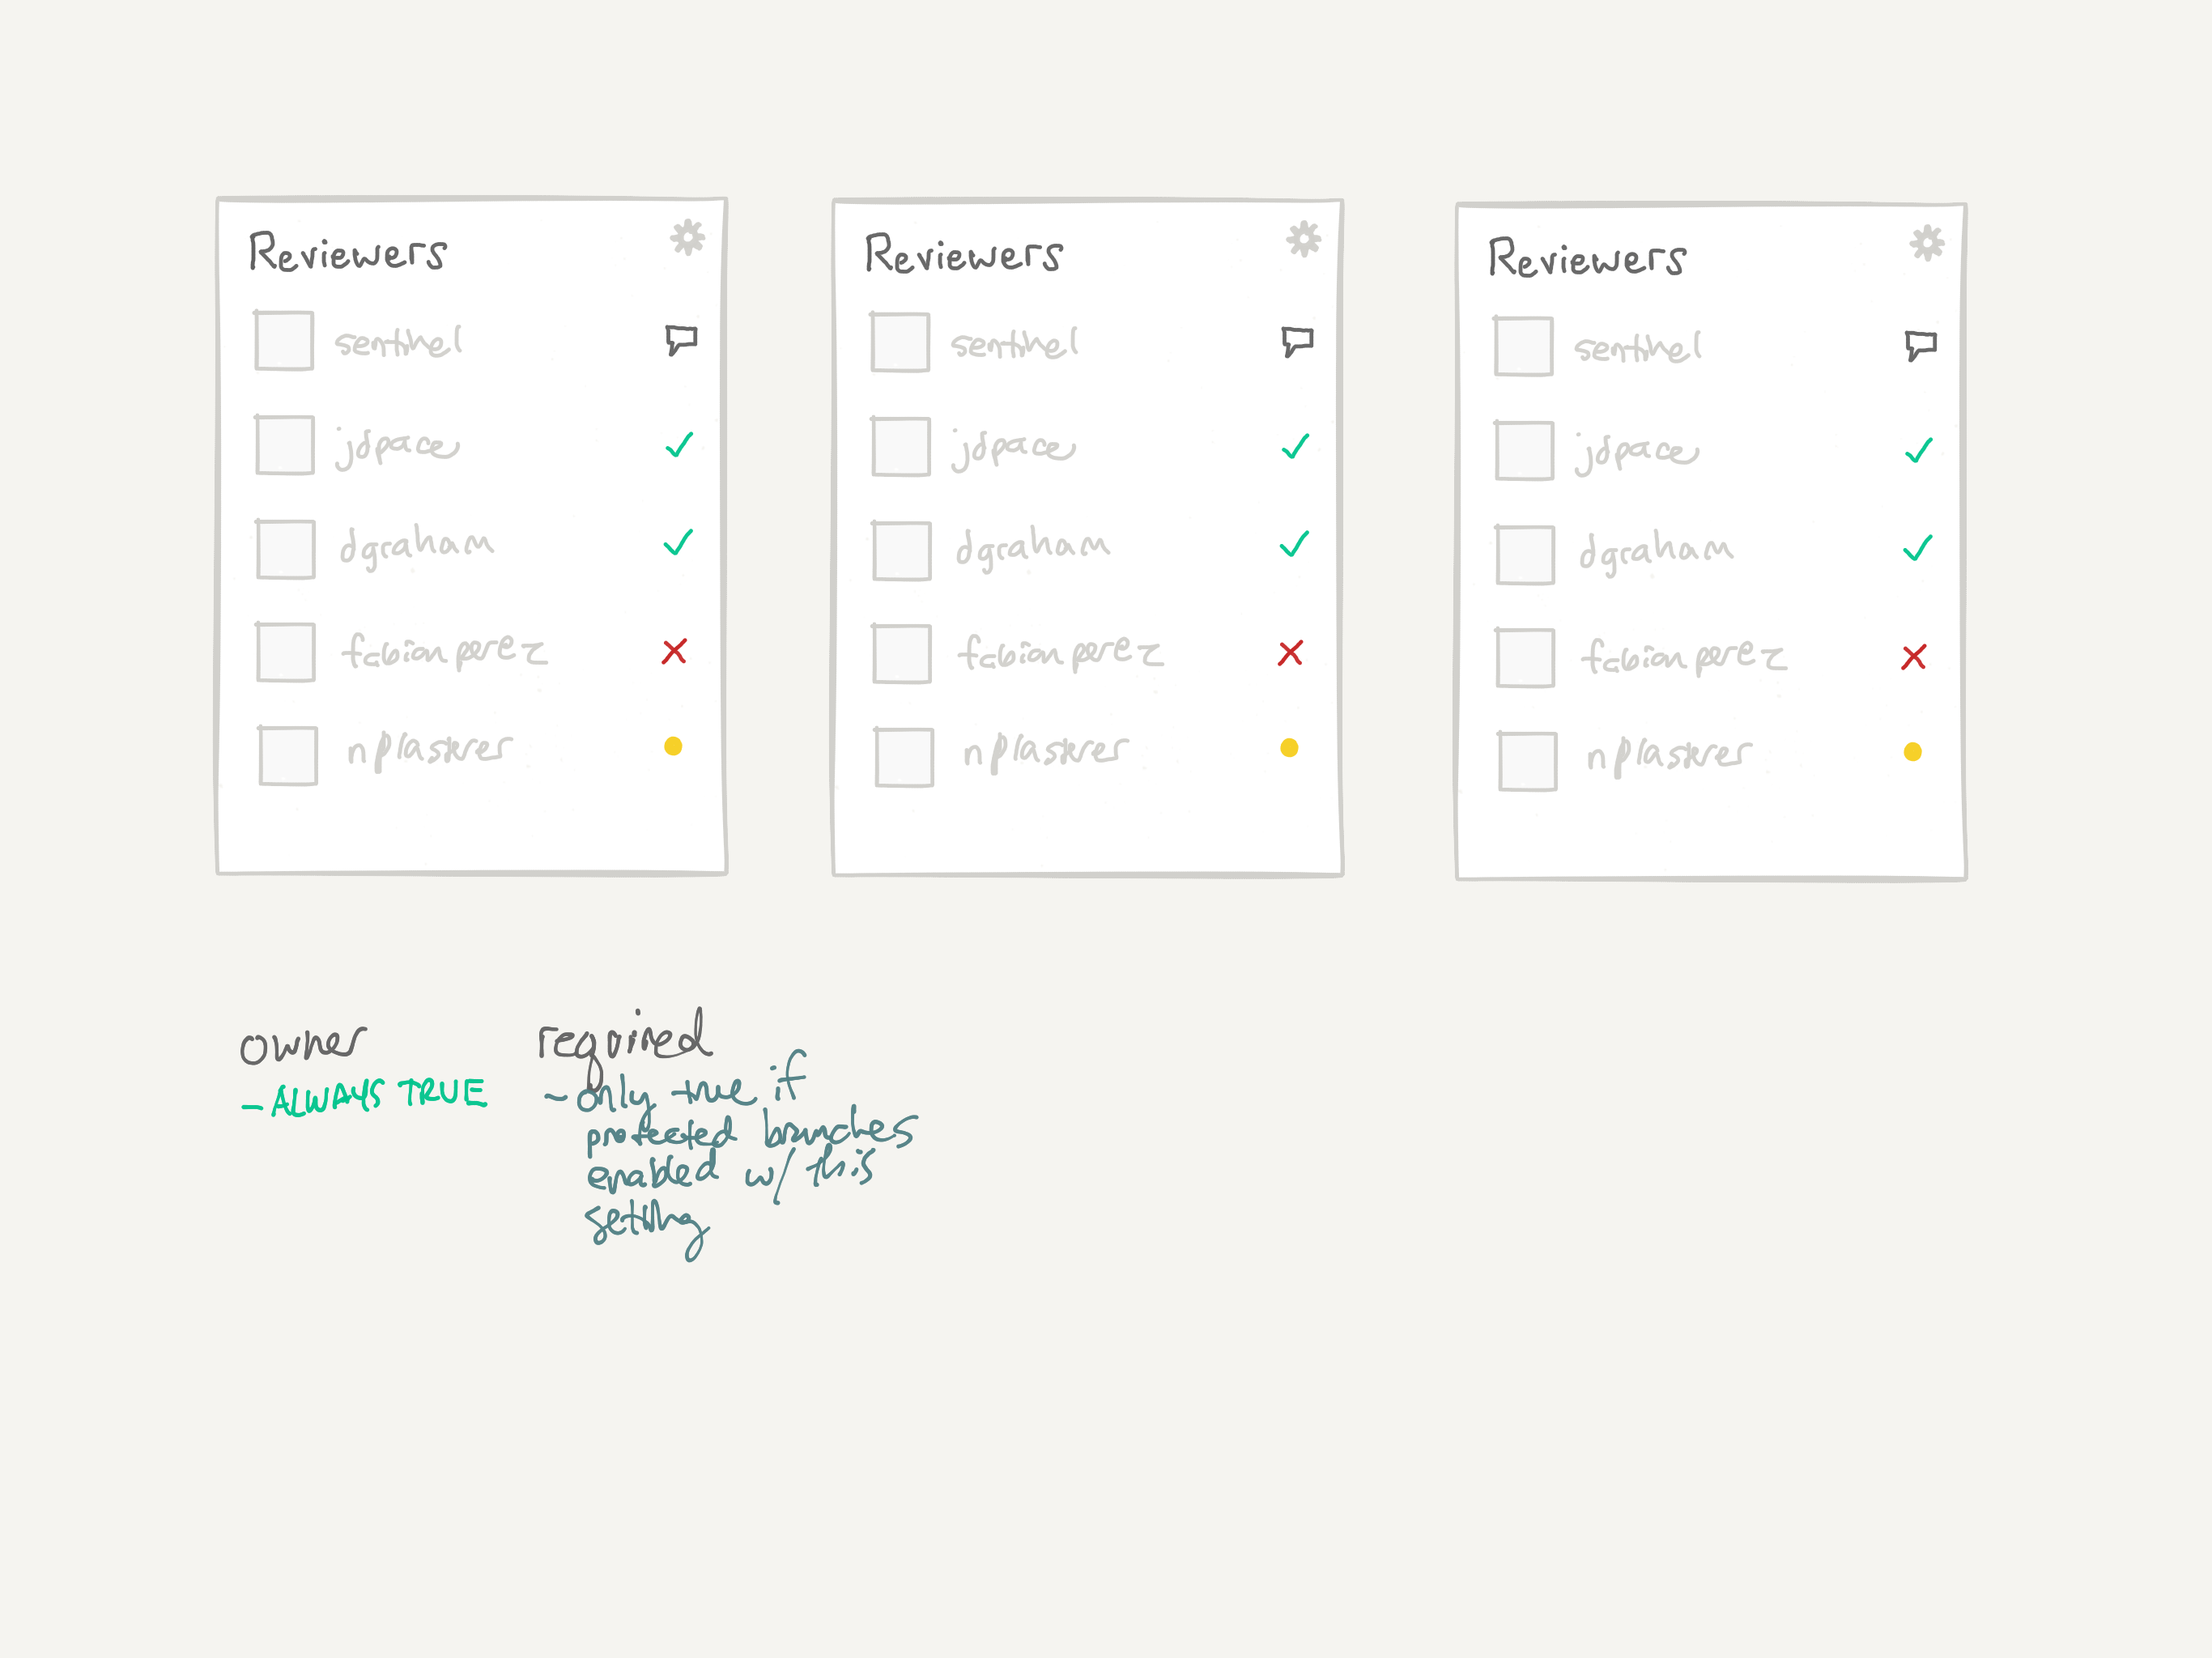 Reviewers
senthvel
jdpace
dgraham
fabianperez
nplasker
Reviewers
senthvel
jdpace
dgraham
fabianperez
nplasker
Reviewers
senthvel
jdpace
dgraham
fabianperez
nplasker
owner
- ALWAYS TRUE
required
- only true if
protected branches
enabled w/ this
setting